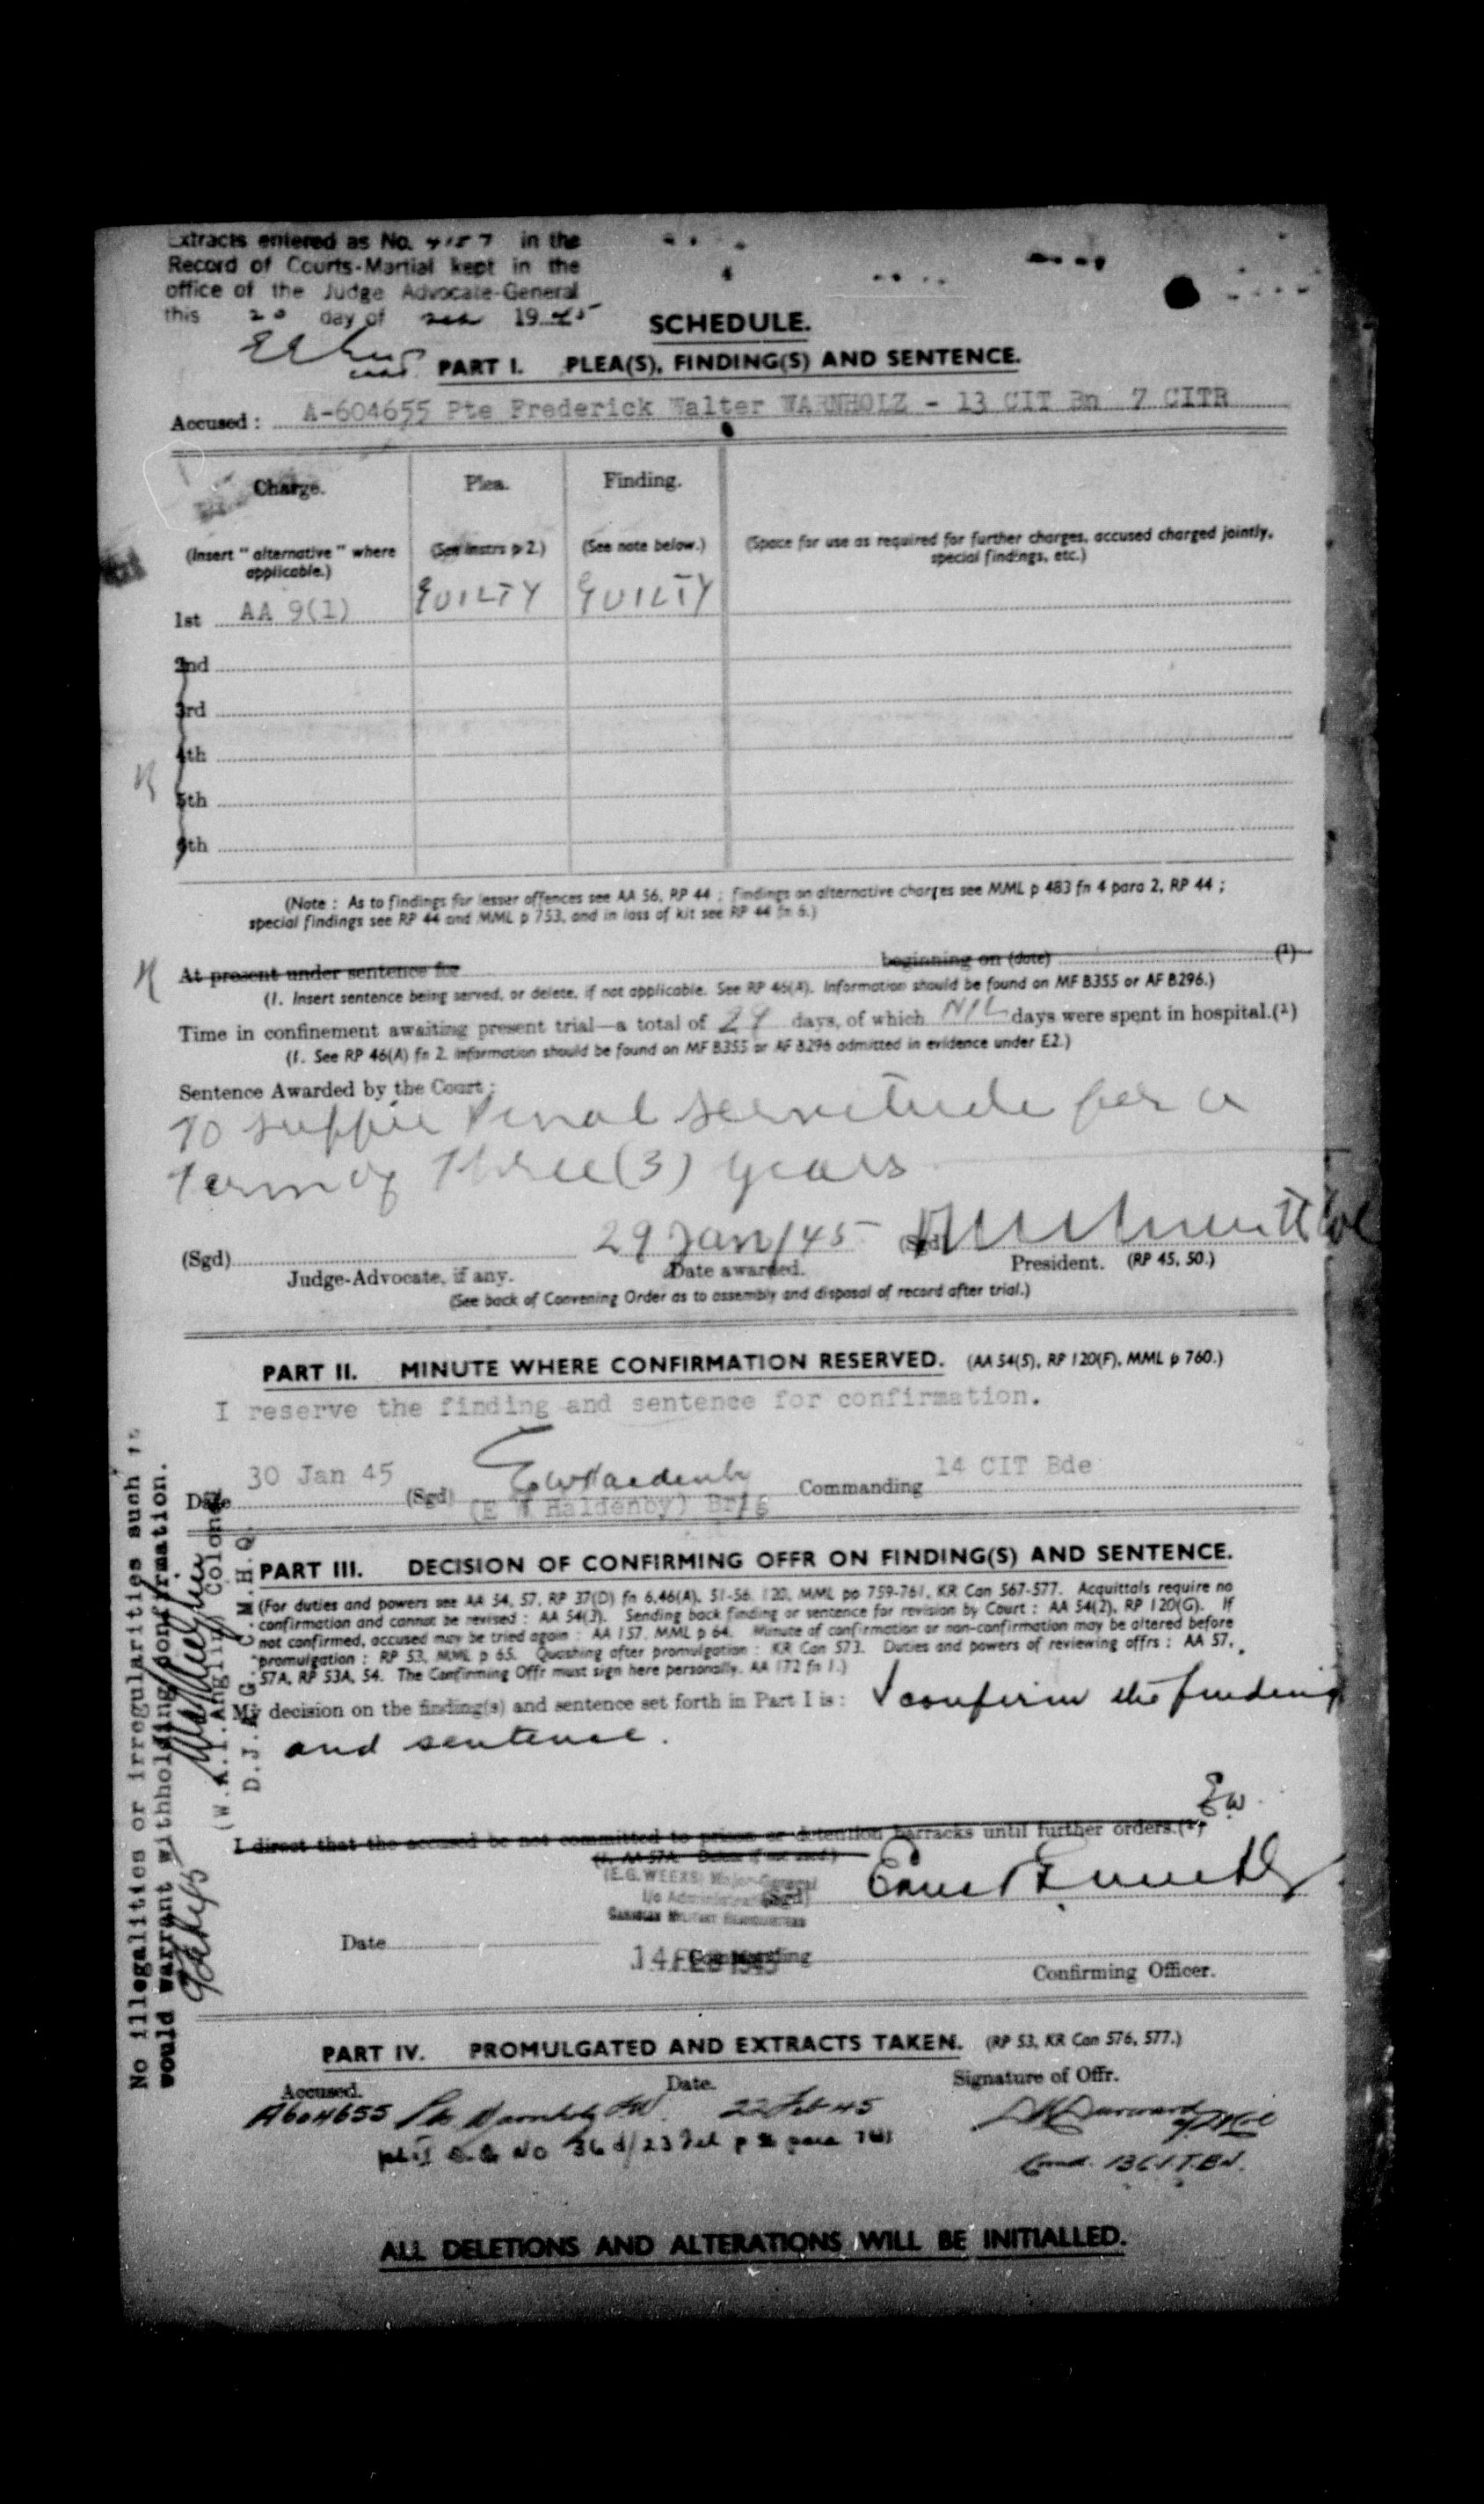 Extracts entered as No. 4157 in the
Record of Courts-Martial kept in the
office of the Judge Advocate-General
this 20 day of 1945
SCHEDULE.
PART I. PLEA(S), FINDING(S) AND SENTENCE.
Accused : A-604655 Pte Frederick Walter WARNHOLZ - 13 CIT Bn 7 CITR
Charge. Plea. Finding.
(Insert " alternative " where applicable.) (See instrs p 2.) (See note below.) (Space for use as required for further charges, accused charged jointly, special findings, etc.)
1st AA 9(1) GUILTY GUILTY
2nd
3rd
4th
5th
6th
(Note : As to findings for lesser offences see AA 56, RP 44 ; findings on alternative charges see MML p 483 fn 4 para 2, RP 44 ;
special findings see RP 44 and MML p 753, and in loss of kit see RP 44 fn 6.)
At present under sentence for beginning on (date) (1)
(1. Insert sentence being served, or delete, if not applicable. See RP 46(A). Information should be found on MF B355 or AF B296.)
Time in confinement awaiting present trial—a total of 29 days, of which NIL days were spent in hospital.(2)
(1. See RP 46(A) fn 2. Information should be found on MF B355 or AF B296 admitted in evidence under E2.)
Sentence Awarded by the Court :
To suffer Penal Servitude for a
term of Three (3) years
(Sgd) 29 Jan/45 (Sgd)
Judge-Advocate, if any. Date awarded. President. (RP 45, 50.)
(See back of Convening Order as to assembly and disposal of record after trial.)
PART II. MINUTE WHERE CONFIRMATION RESERVED. (AA 54(5), RP 120(F), MML p 760.)
I reserve the finding and sentence for confirmation.
Date 30 Jan 45 (Sgd) EWHaldenby Commanding 14 CIT Bde
(E W Haldenby) Brig
PART III. DECISION OF CONFIRMING OFFR ON FINDING(S) AND SENTENCE.
(For duties and powers see AA 54, 57, RP 37(D) fn 6,46(A), 51-56, 120, MML pp 759-761, KR Can 567-577. Acquittals require no
confirmation and cannot be revised : AA 54(3). Sending back finding or sentence for revision by Court : AA 54(2), RP 120(G). If
not confirmed, accused may be tried again : AA 157, MML p 64. Minute of confirmation or non-confirmation may be altered before
promulgation : RP 53, MML p 65. Quashing after promulgation : KR Can 573. Duties and powers of reviewing offrs : AA 57,
57A, RP 53A, 54. The Confirming Offr must sign here personally. AA 172 fn 1.)
My decision on the finding(s) and sentence set forth in Part I is : I confirm the finding
and sentence.
I direct that the accused be not committed to prison or detention barracks until further orders.(1)
(1. AA 57A. Delete if not used.)
(E.G. WEEKS) Major-General
i/c Administration (Sgd)
CANADIAN MILITARY HEADQUARTERS
Date 14 FEB 1945 Commanding
Confirming Officer.
No illegalities or irregularities such as
would warrant withholding confirmation.
(W.A.I.Anglin) Colonel
D.J.A.G. C.M.H.Q.
9 Feb 45
PART IV. PROMULGATED AND EXTRACTS TAKEN. (RP 53, KR Can 576, 577.)
Accused. Date. Signature of Offr.
A604655 Pte Warnholz FW. 22 Feb 45
No 36 d/23 Feb p 2 para
Comd. 13 C.I.T.BN.
ALL DELETIONS AND ALTERATIONS WILL BE INITIALLED.